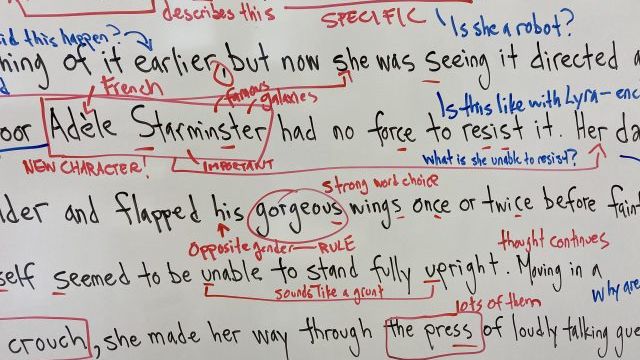 describes this SPECIFIC Is she a robot?
did this happen?
ning of it earlier, but now she was seeing it directed a
1
French famous galaxies Is this like with Lyra-enc
oor Adèle Starminster had no force to resist it. Her da
NEW CHARACTER! IMPORTANT what is she unable to resist?
strong word choice
lder and flapped his gorgeous wings once or twice before faint
Opposite gender — RULE thought continues
self seemed to be unable to stand fully upright. Moving in a
sounds like a grunt lots of them why are
crouch, she made her way through the press of loudly talking gue